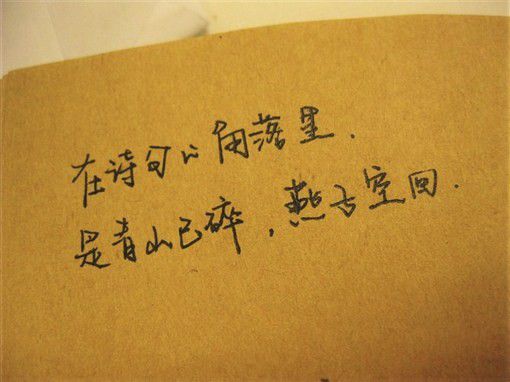 在诗句的角落里.
是青山已碎,燕去空回.